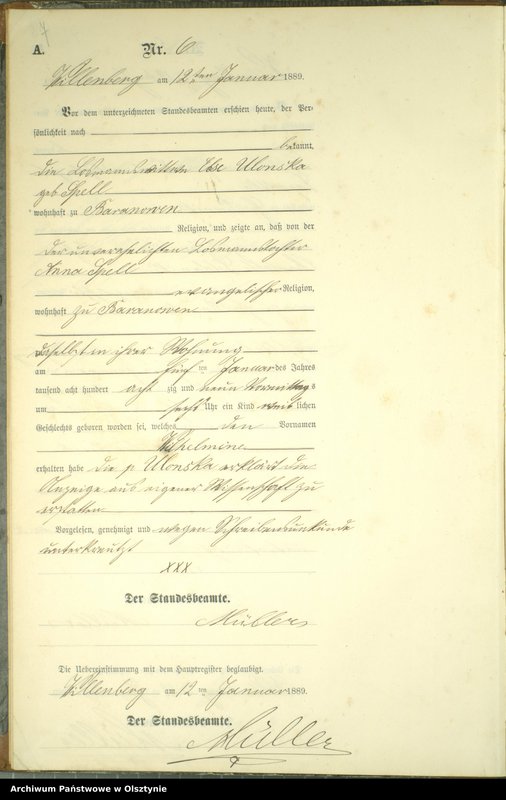 A.
Nr. 6
Willenberg am 12ten Januar 1889.
Vor dem unterzeichneten Standesbeamten erschien heute, der Per-
sönlichkeit nach
bekannt,
die Losmannswittwe Ulonska
geb Spell
wohnhaft zu Baranowen
Religion, und zeigte an, daß von der
der unverehelichten Losmannstochter
Anna Spell
evangelischer Religion,
wohnhaft zu Baranowen
daselbst in ihrer Wohnung
am fünften Januar des Jahres
tausend acht hundert achtzig und neun Vormittags
um sechs Uhr ein Kind weiblichen
Geschlechts geboren worden sei, welches den Vornamen
Wilhelmine
erhalten habe die p. Ulonska erklärt die
Anzeige aus eigener Wissenschaft zu
erstatten
Vorgelesen, genehmigt und wegen Schreibensunkunde
unterkreuzt
XXX
Der Standesbeamte.
Müller
Die Uebereinstimmung mit dem Hauptregister beglaubigt.
Willenberg am 12ten Januar 1889.
Der Standesbeamte.
Müller
Archiwum Państwowe w Olsztynie